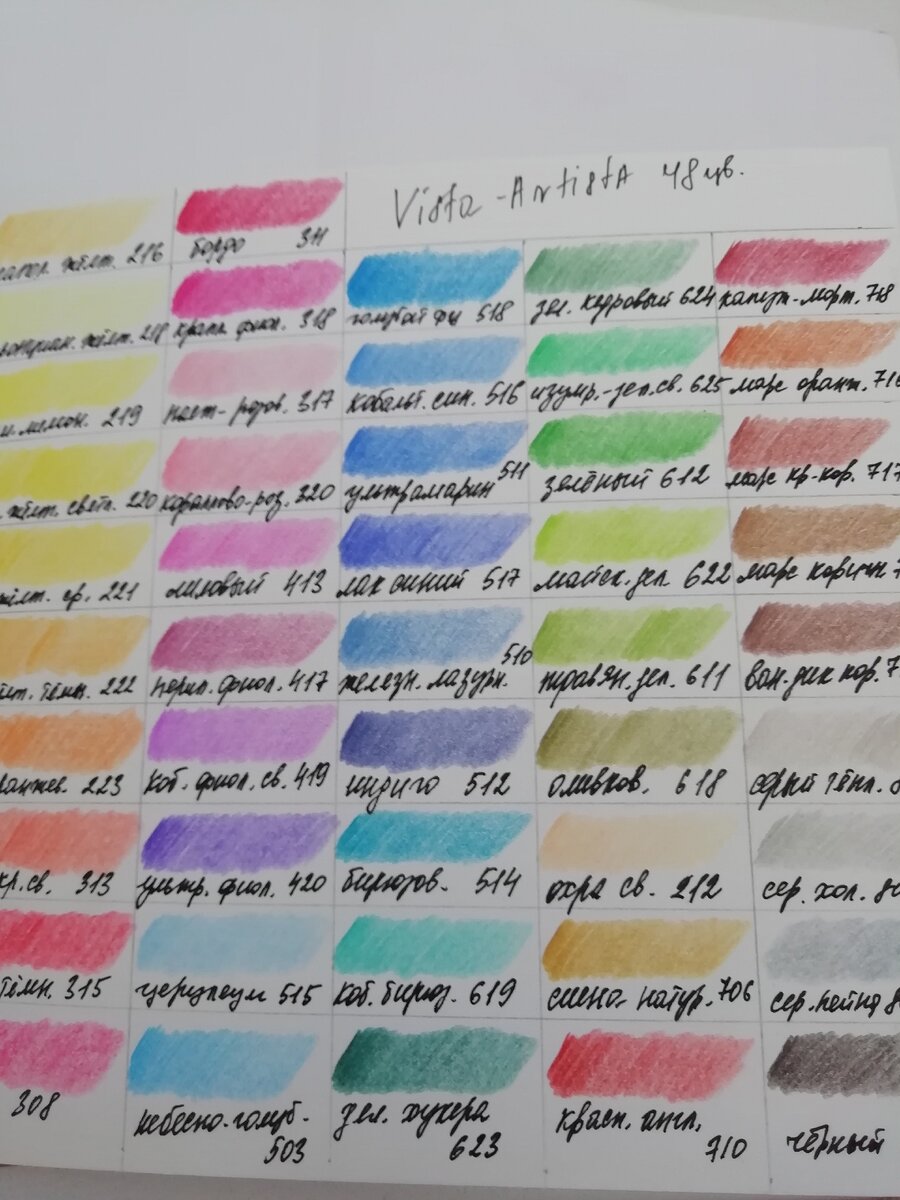 Vista-Artista 48 цв.
жёлт. 216
бордо 311
жёлт. 218
крапл. фиол. 318
голубой фц 518
зел. кедровый 624
капут-морт. 718
лимон. 219
паст-розов. 317
кобальт. син. 516
изумр.-зел.св. 625
марс оранж. 716
жёлт. светл. 220
кораллово-роз. 320
ультрамарин 511
зелёный 612
марс кр-кор. 717
жёлт. ср. 221
лиловый 413
лак синий 517
майск. зел. 622
марс коричн 7
жёлт. тёмн. 222
перил. фиол. 417
железн. лазурн. 510
травян. зел. 611
ван-дик кор. 7
ранжев. 223
коб. фиол. св. 419
индиго 512
оливков. 618
серый тёпл.
кр.св. 313
ультр. фиол. 420
бирюзов. 514
охра св. 212
сер. хол. 8
тёмн. 315
церулеум 515
коб. бирюз. 619
сиена натур. 706
сер. пейна 8
308
небесно-голуб. 503
зел. хукера 623
красн. англ. 710
чёрный